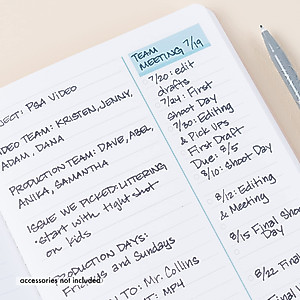 JECT: PSA VIDEO
VIDEO TEAM: KRISTEN, JENNY,
ADAM, DANA
PRODUCTION TEAM: DAVE, ABBI,
ANIKA, SAMANTHA
ISSUE WE PICKED: LITTERING
• start with tight shot
on kids
PRODUCTION DAYS:
Fridays and Sundays
TO: Mr. Collins
MP4
TEAM
MEETING 7/19
7/20: edit
drafts
7/24: First
Shoot Day
7/30: Editing
& Pick Ups
First Draft
Due: 8/5
8/10: Shoot Day
8/12: Editing
& Meeting
8/15 Final Shoot
Day
8/22 Final
accessories not included